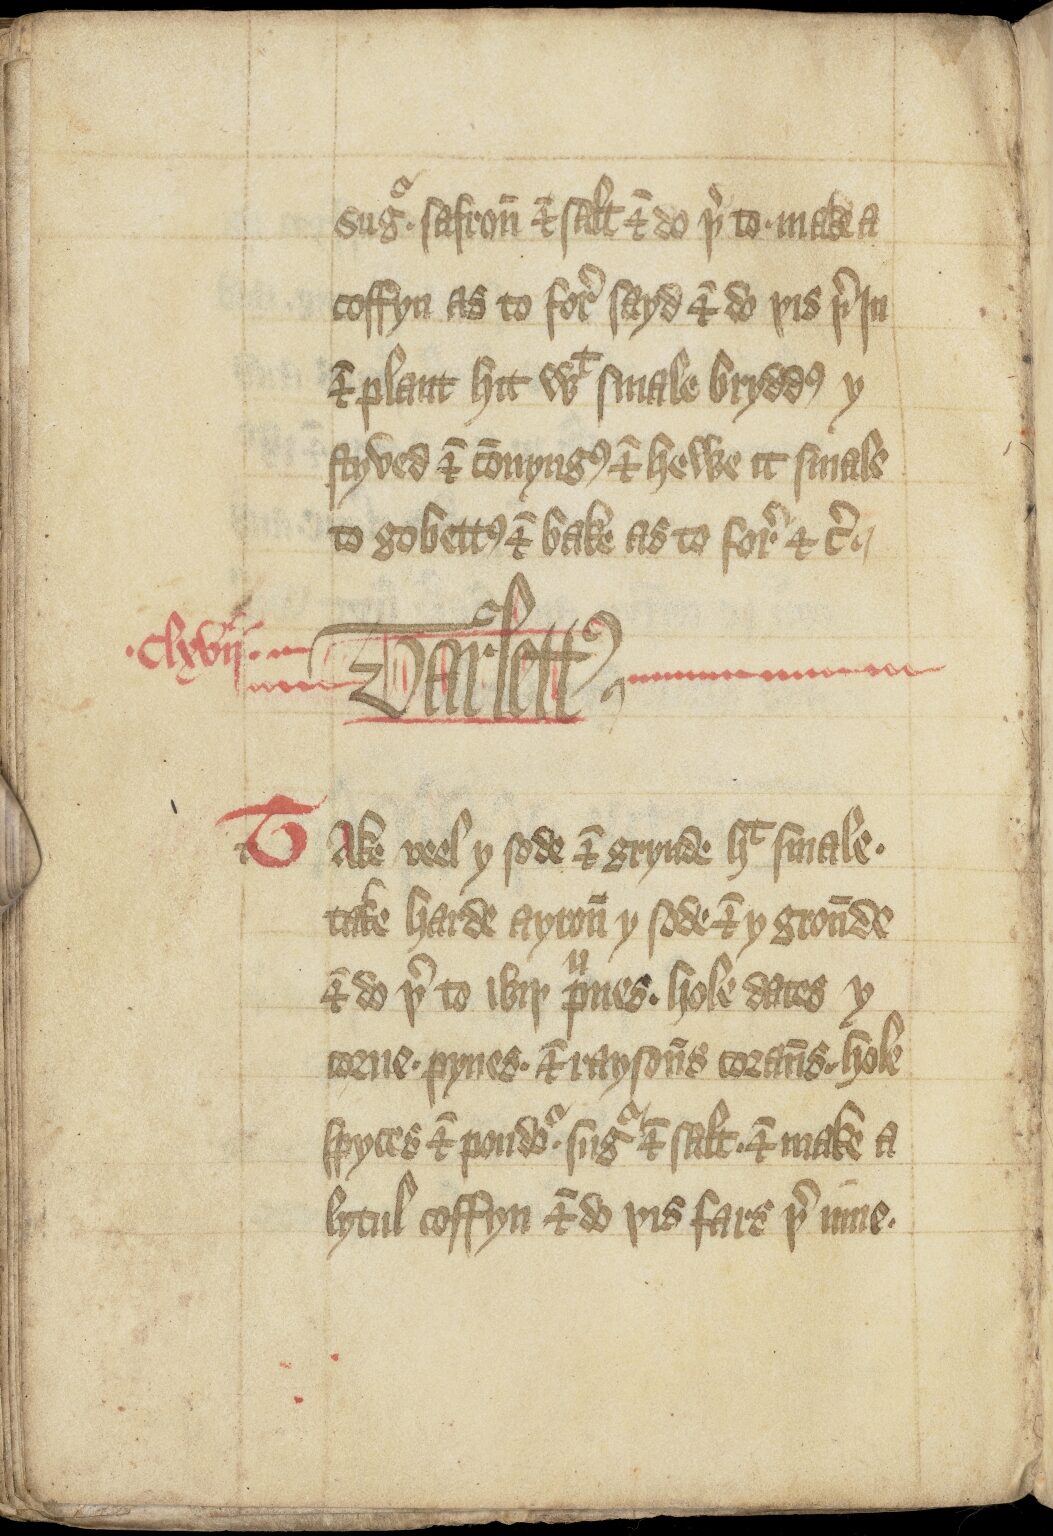 sugͣ. safron̄ & salt & do þͥ to. make a
coffyn as to forͤ sayd & do þis þͥ In
& plant hit wͭ smale brydd⁹ y
styved & cōnyng⁹ & hewe it smale
to gobett⁹ & bake as to forͤ & cͤ.
.clxvij. Tarlett⁹
TAke veel y sode & grynde hͭ smale.
take harde ayron̄ y sode & y gron̄de
& do þͥ to wiþ pͬunes. hole dates y
corne. pynes. & raysōns coran̄s. hole
spyces & poudͦ. sugͣ & salt. & make a
lytul coffyn & do þis fars þͥ inne.